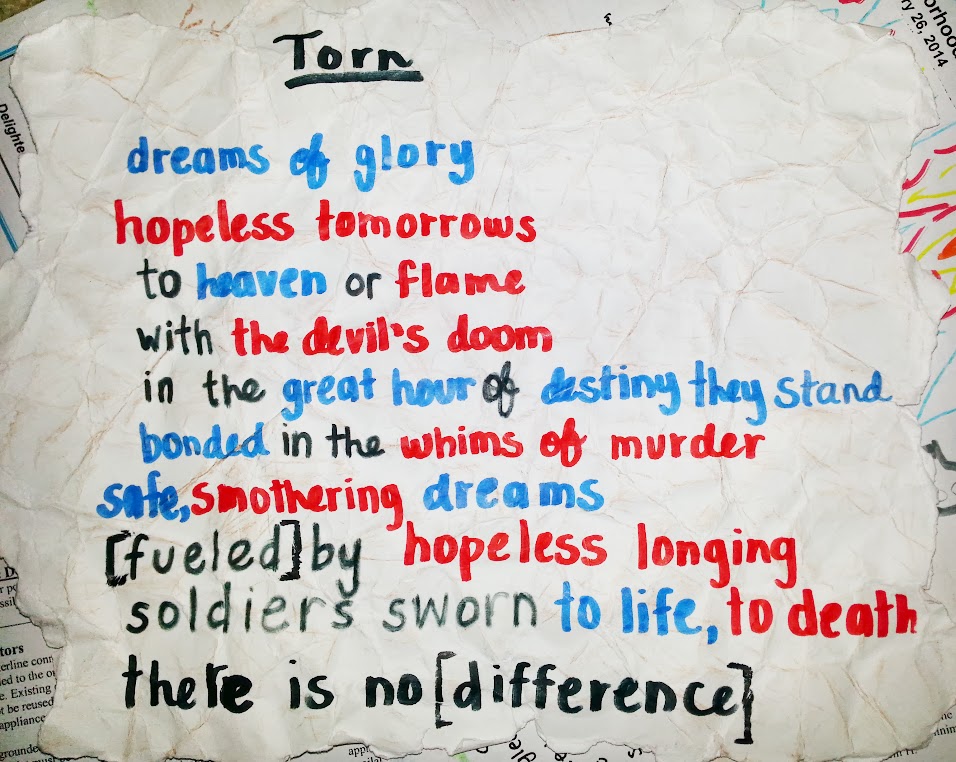 Torn
dreams of glory
hopeless tomorrows
to heaven or flame
with the devil's doom
in the great hour of destiny they stand
bonded in the whims of murder
safe, smothering dreams
[fueled] by hopeless longing
soldiers sworn to life, to death
there is no [difference]
26, 2014
Delighte
tors
erline cont
. Existing
t be reused
appliance